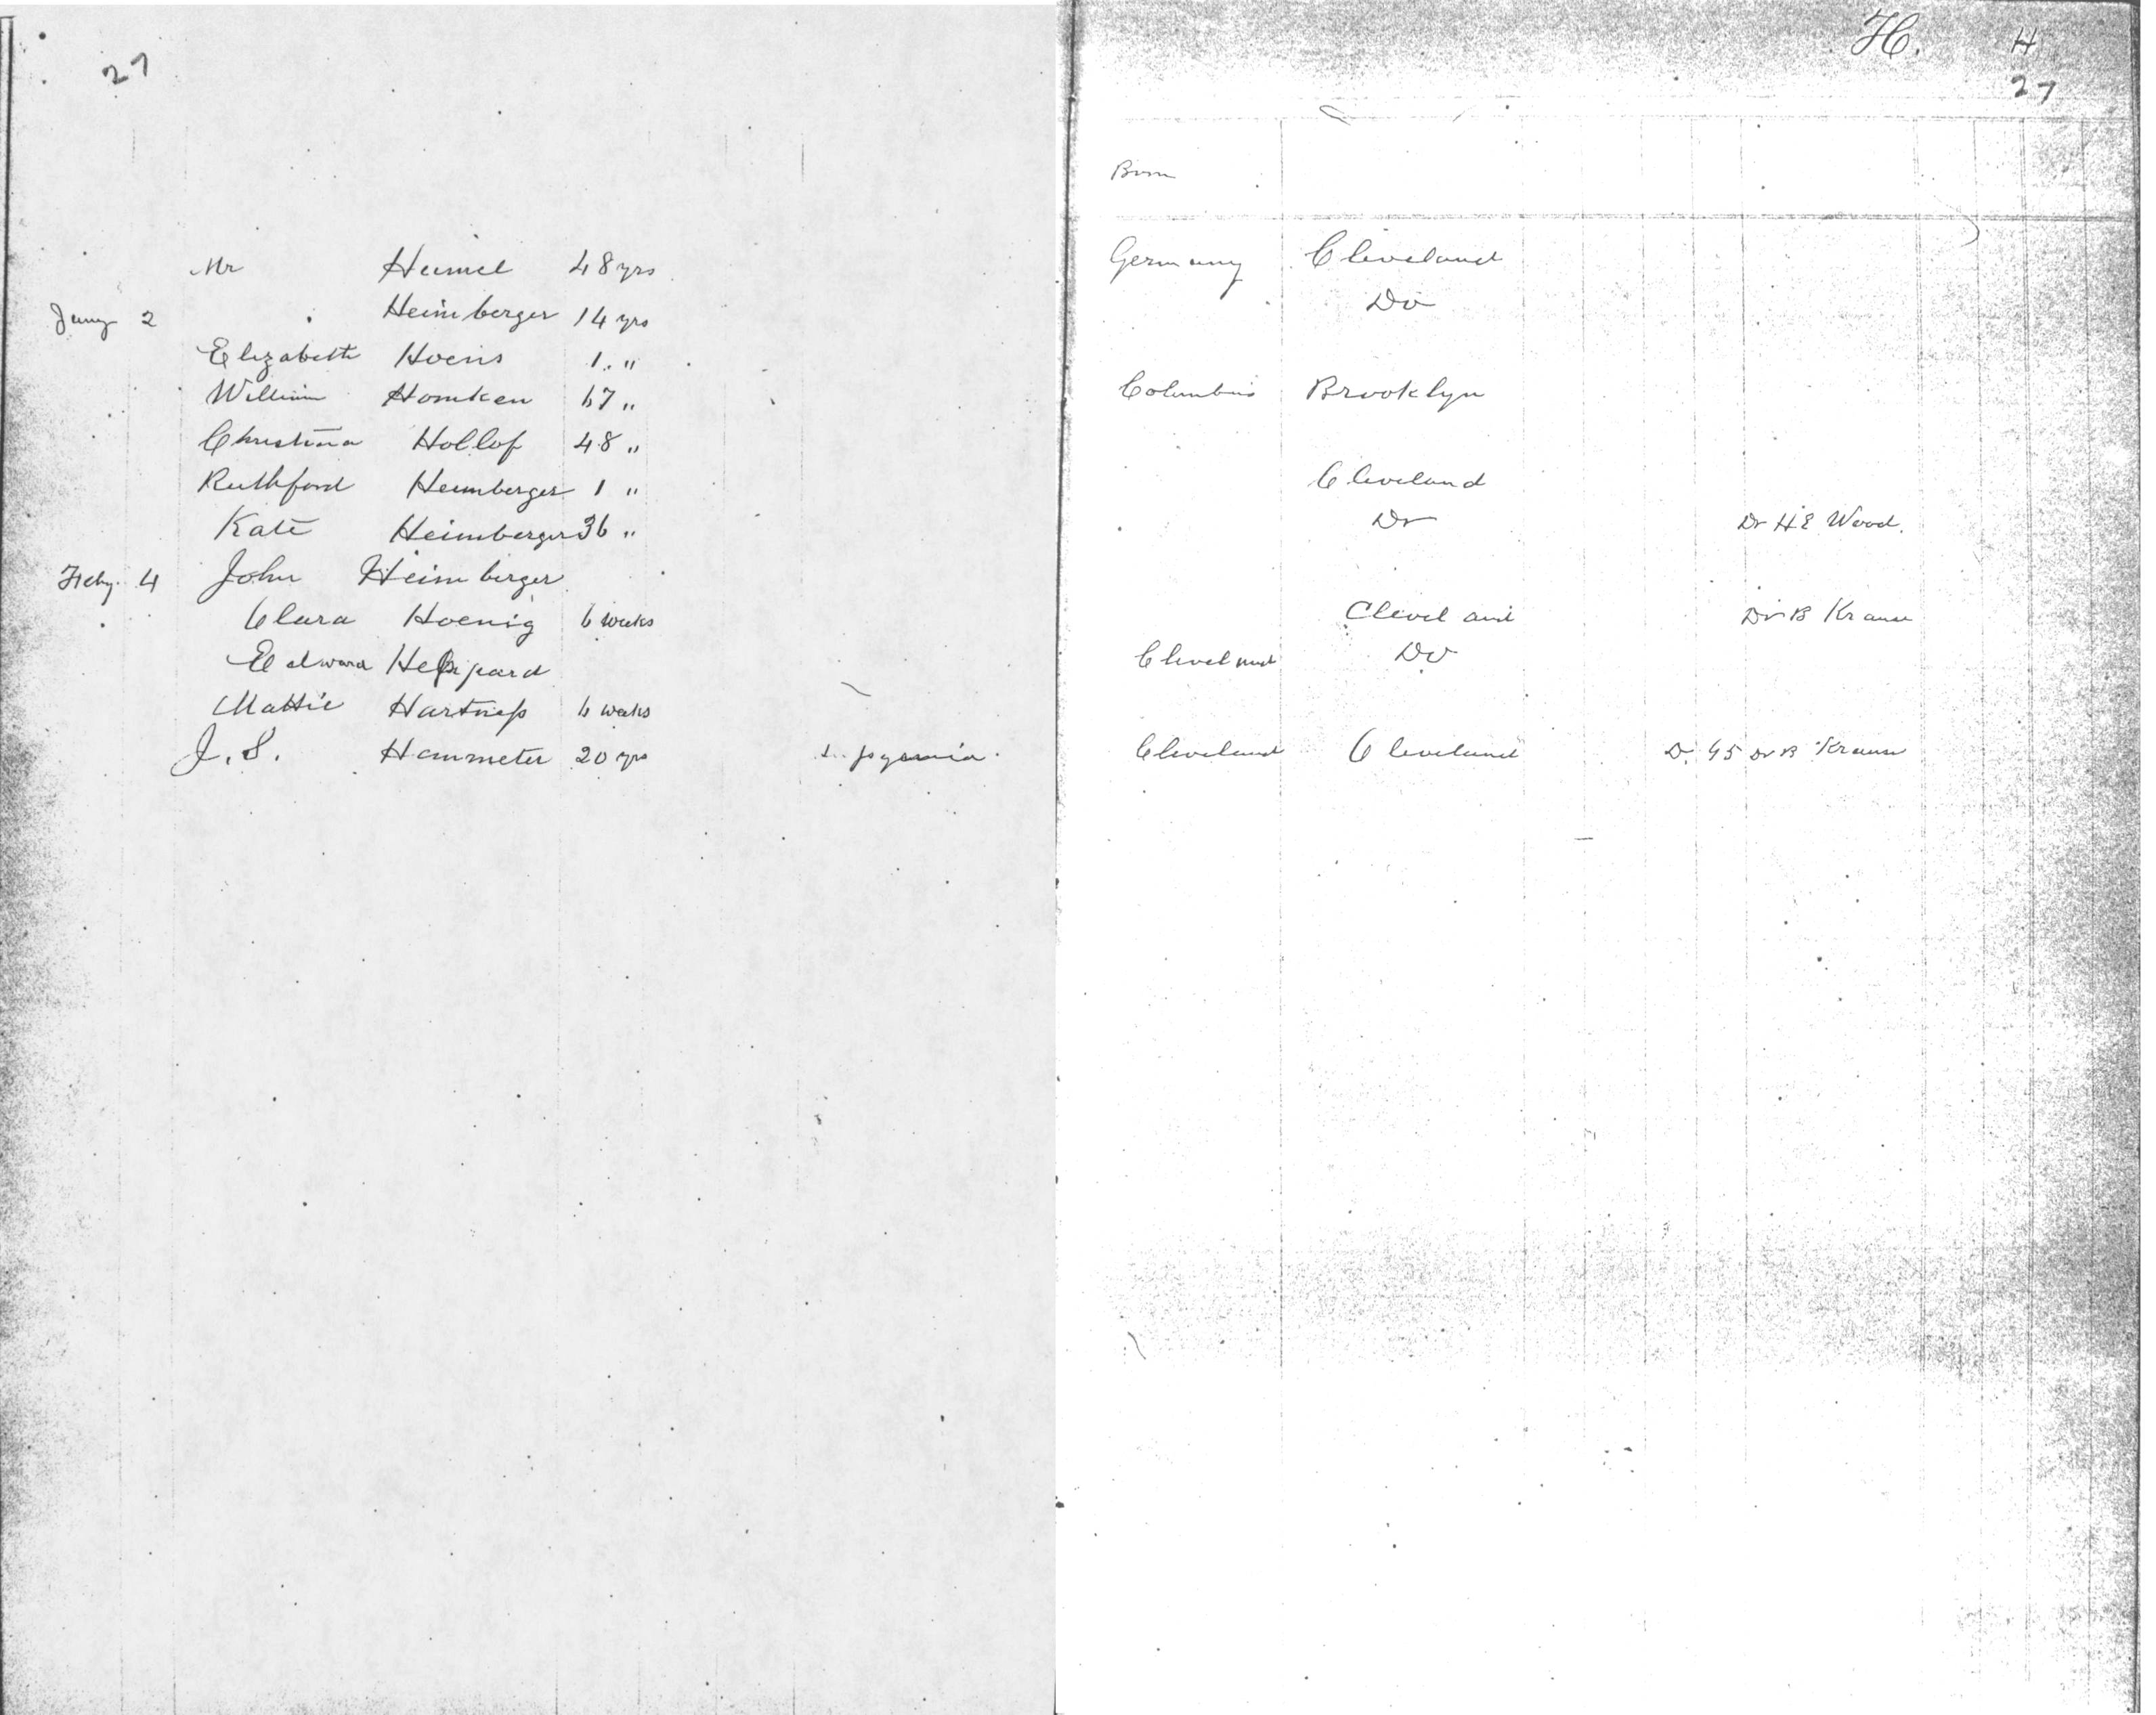 27
H. H
27
Born
Mr Heimel 48 yrs Germany Cleveland
Jany 2 Heimberger 14 yrs Do
Elizabeth Hoens 1 "
William Homken 67 " Columbus Brooklyn
Christina Hollof 48 "
Ruthford Heimberger 1 " Cleveland
Kate Heimberger 36 " Do Dr H E Wood.
Feby. 4 John Heimberger
Clara Hoenig 6 weeks Cleveland Dr B Krause
Edward Heppard Cleveland Do
Mattie Hartness 6 weeks
J. S. Hammeter 20 yrs pyemia. Cleveland Cleveland D. 45 Dr B Krause